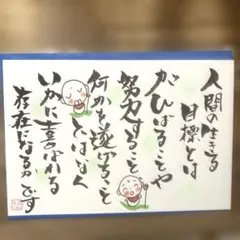 人間の生きる
目標とは
がんばることや
努力すること
何かを遂げること
とはなく
いかに喜ばれる
存在になるかです